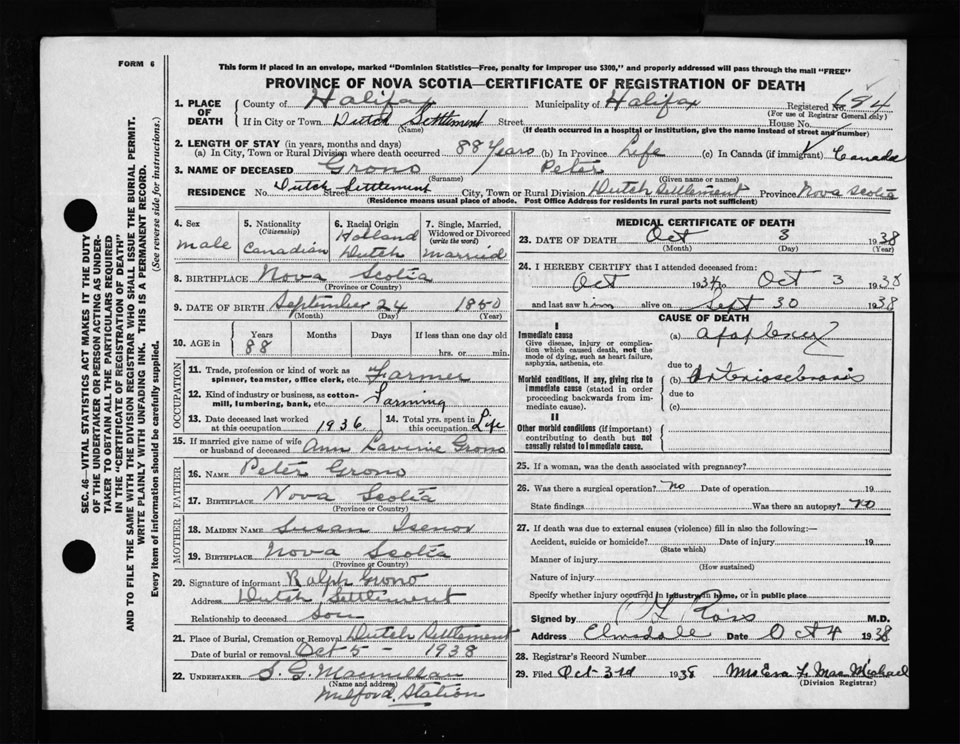 FORM 6
This form if placed in an envelope, marked "Dominion Statistics—Free, penalty for improper use $300," and properly addressed will pass through the mail "FREE"
PROVINCE OF NOVA SCOTIA—CERTIFICATE OF REGISTRATION OF DEATH
1. PLACE OF DEATH
County of Halifax Municipality of Halifax Registered No. 194
(For use of Registrar General only)
If in City or Town Dutch Settlement Street House No.
(Name) (If death occurred in a hospital or institution, give the name instead of street and number)
2. LENGTH OF STAY (in years, months and days)
(a) In City, Town or Rural Division where death occurred 88 Years (b) In Province Life (c) In Canada (if immigrant) Canada
3. NAME OF DECEASED Grono Peter
(Surname) (Given name or names)
RESIDENCE No. Dutch Settlement Street City, Town or Rural Division Dutch Settlement Province Nova Scotia
(Residence means usual place of abode. Post Office Address for residents in rural parts not sufficient)
4. Sex male
5. Nationality (Citizenship) Canadian
6. Racial Origin Holland Dutch
7. Single, Married, Widowed or Divorced (write the word) Married
8. BIRTHPLACE Nova Scotia
(Province or Country)
9. DATE OF BIRTH September 24 1850
(Month) (Day) (Year)
10. AGE in Years 88 Months Days If less than one day old
hrs. or min.
OCCUPATION
11. Trade, profession or kind of work as spinner, teamster, office clerk, etc. Farmer
12. Kind of industry or business, as cotton-mill, lumbering, bank, etc. Farming
13. Date deceased last worked at this occupation 1936
14. Total yrs. spent in this occupation Life
15. If married give name of wife or husband of deceased Ann Lavinie Grono
FATHER
16. NAME Peter Grono
17. BIRTHPLACE Nova Scotia
(Province or Country)
MOTHER
18. MAIDEN NAME Susan Isenor
19. BIRTHPLACE Nova Scotia
(Province or Country)
20. Signature of informant Ralph Grono
Address Dutch Settlement
Relationship to deceased Son
21. Place of Burial, Cremation or Removal Dutch Settlement
Date of burial or removal Oct 5 - 1938
22. UNDERTAKER S. G. Macmillan
(Name and address)
Milford Station
MEDICAL CERTIFICATE OF DEATH
23. DATE OF DEATH Oct 3 1938
(Month) (Day) (Year)
24. I HEREBY CERTIFY that I attended deceased from:
Oct 1934 to Oct 3 1938
and last saw him alive on Sept 30 1938
CAUSE OF DEATH
I
Immediate cause
Give disease, injury or complication which caused death, not the mode of dying, such as heart failure, asphyxia, asthenia, etc
(a) apoplexy
due to
Morbid conditions, if any, giving rise to immediate cause (stated in order proceeding backwards from immediate cause).
(b) Arteriosclerosis
due to
(c)
II
Other morbid conditions (if important) contributing to death but not causally related to immediate cause.
25. If a woman, was the death associated with pregnancy?
26. Was there a surgical operation? no Date of operation 19
State findings Was there an autopsy? no
27. If death was due to external causes (violence) fill in also the following:—
Accident, suicide or homicide? Date of injury 19
(State which)
Manner of injury
(How sustained)
Nature of injury
Specify whether injury occurred in industry, in home, or in public place
Signed by Ross M.D.
Address Elmsdale Date Oct 4 1938
28. Registrar's Record Number
29. Filed Oct-3rd 1938 Mrs Eva F. MacMichael
(Division Registrar)
SEC. 46—VITAL STATISTICS ACT MAKES IT THE DUTY
OF THE UNDERTAKER OR PERSON ACTING AS UNDERTAKER TO OBTAIN ALL THE PARTICULARS REQUIRED
IN THE "CERTIFICATE OF REGISTRATION OF DEATH"
AND TO FILE THE SAME WITH THE DIVISION REGISTRAR WHO SHALL ISSUE THE BURIAL PERMIT.
WRITE PLAINLY WITH UNFADING INK. THIS IS A PERMANENT RECORD.
Every item of information should be carefully supplied. (See reverse side for instructions.)